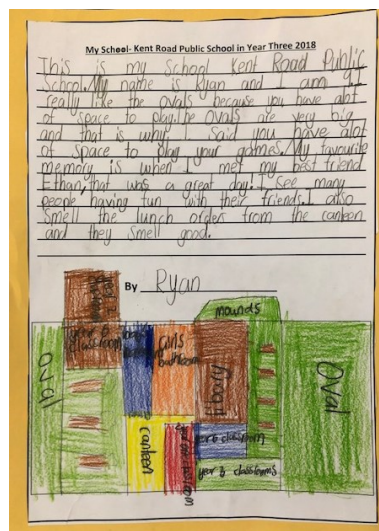 My School- Kent Road Public School in Year Three 2018
This is my School Kent Road Public
School. My name is Ryan and I am 9. I
really like the ovals because you have alot
of space to play. The ovals are very big
and that is why I said you have alot
of space to play your games. My favourite
memory is when I met my best friend
Ethan, that was a great day! I see many
people having fun with their friends. I also
smell the lunch orders from the canteen
and they smell good.
By Ryan
mounds
year 6
classroom
girls
bathroom
oval
Oval
canteen
classroom
year 3 classrooms